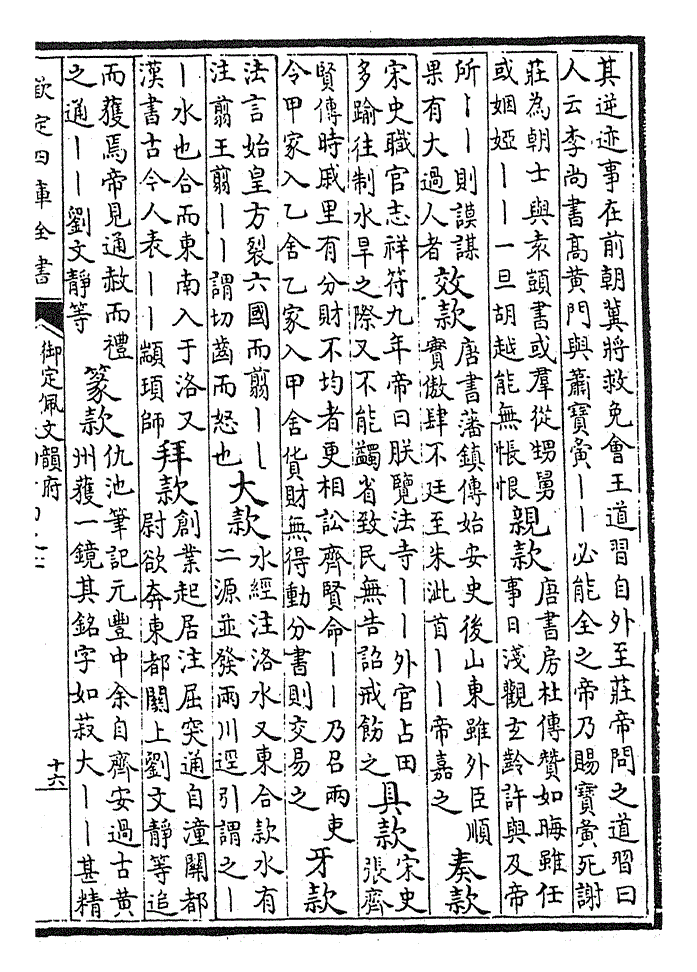 其逆迹事在前朝冀將救免會王道習自外至莊帝問之道習曰
人云李尚書高黃門與蕭寶夤丨丨必能全之帝乃賜寶夤死謝
莊為朝士與袁顗書或羣從甥舅
或姻婭丨丨一旦胡越能無悵恨
親款
唐書房杜傳贊如晦雖任
事日淺觀玄齡許與及帝
所丨丨則謨謀
果有大過人者
效款
唐書藩鎮傳始安史後山東雖外臣順
實傲肆不廷至朱泚首丨丨帝嘉之
奏款
宋史職官志祥符九年帝曰朕覽法寺丨丨外官占田
多踰往制水旱之際又不能蠲省致民無告詔戒飭之
具款
宋史
張齊
賢傳時戚里有分財不均者更相訟齊賢命丨丨乃召兩吏
令甲家入乙舍乙家入甲舍貨財無得動分書則交易之
牙款
法言始皇方裂六國而翦丨丨
注翦王翦丨丨謂切齒而怒也
大款
水經注洛水又東合款水有
二源並發兩川逕引謂之丨
丨水也合而東南入于洛又
漢書古今人表丨丨顓頊師
拜款
創業起居注屈突通自潼關都
尉欲奔東都闕上劉文靜等追
而獲焉帝見通赦而禮
之通丨丨劉文靜等
篆款
仇池筆記元豐中余自齊安過古黄
州獲一鏡其銘字如菽大丨丨甚精
欽定四庫全書
御定佩文韻府
十六